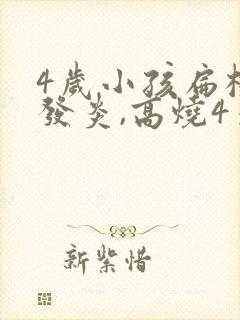 4歲小孩扁桃
發炎,高燒4
新紫惜